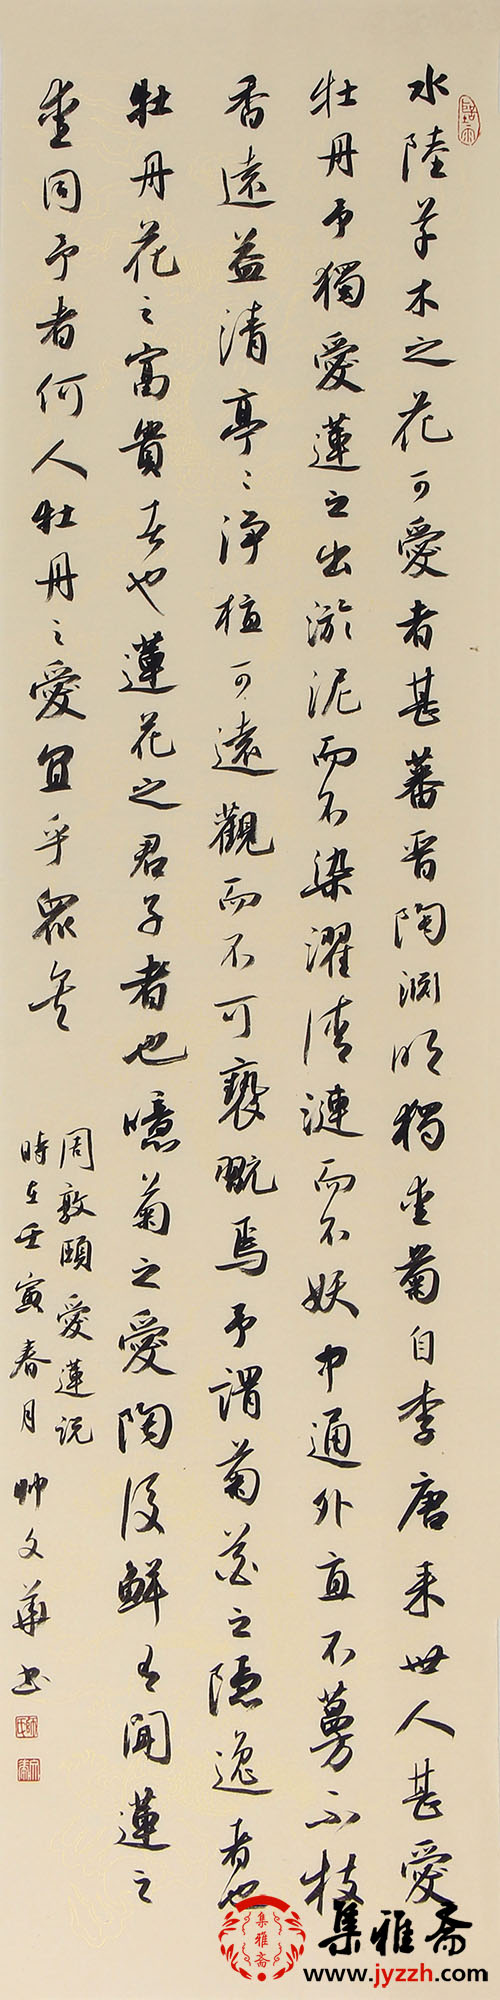 水陸草木之花可愛者甚蕃晋陶渊明獨愛菊自李唐来世人甚愛
牡丹予獨愛蓮之出淤泥而不染濯清漣而不妖中通外直不蔓不枝
香遠益清亭〻淨植可遠觀而不可褻翫焉予謂菊花之隱逸者也
牡丹花之富貴者也蓮花之君子者也噫菊之愛陶後鮮有聞蓮之
愛同予者何人牡丹之愛宜乎眾矣
周敦頤愛蓮说
時在壬寅春月帅文華书
集雅斋
集雅斋
www.jyzzh.com